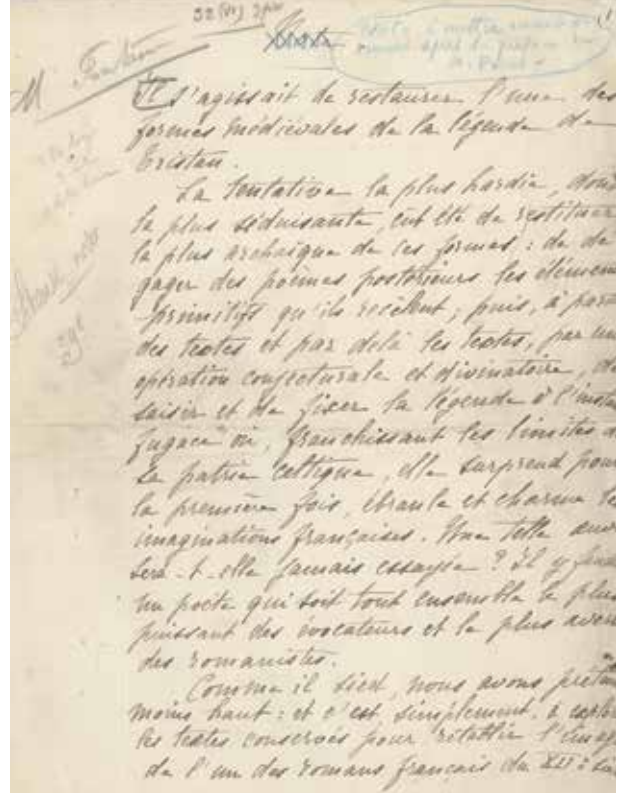 (1
M
Il s'agissait de restaurer l'une des
formes médiévales de la légende de
Tristan.
La tentative la plus hardie, donc
la plus séduisante, eût été de restituer
la plus archaïque de ces formes : de dé
gager des poèmes postérieurs les élémen
primitifs qu'ils recèlent ; puis, à part
des textes et par delà les textes, par une
opération conjecturale et divinatoire, de
saisir et de fixer la légende à l'insta
fugace où, franchissant les limites d
sa patrie celtique, elle surprend pour
la première fois, ébranle et charme le
imaginations françaises. Une telle œuv
sera-t-elle jamais essayée ? Il y faud
un poète qui soit tout ensemble le plus
puissant des évocateurs et le plus averti
des romanistes.
Comme il sied, nous avons préten
moins haut : et c'est, simplement, à
les textes conservés pour rétablir l'imag
de l'un des romans français du XIIe siè